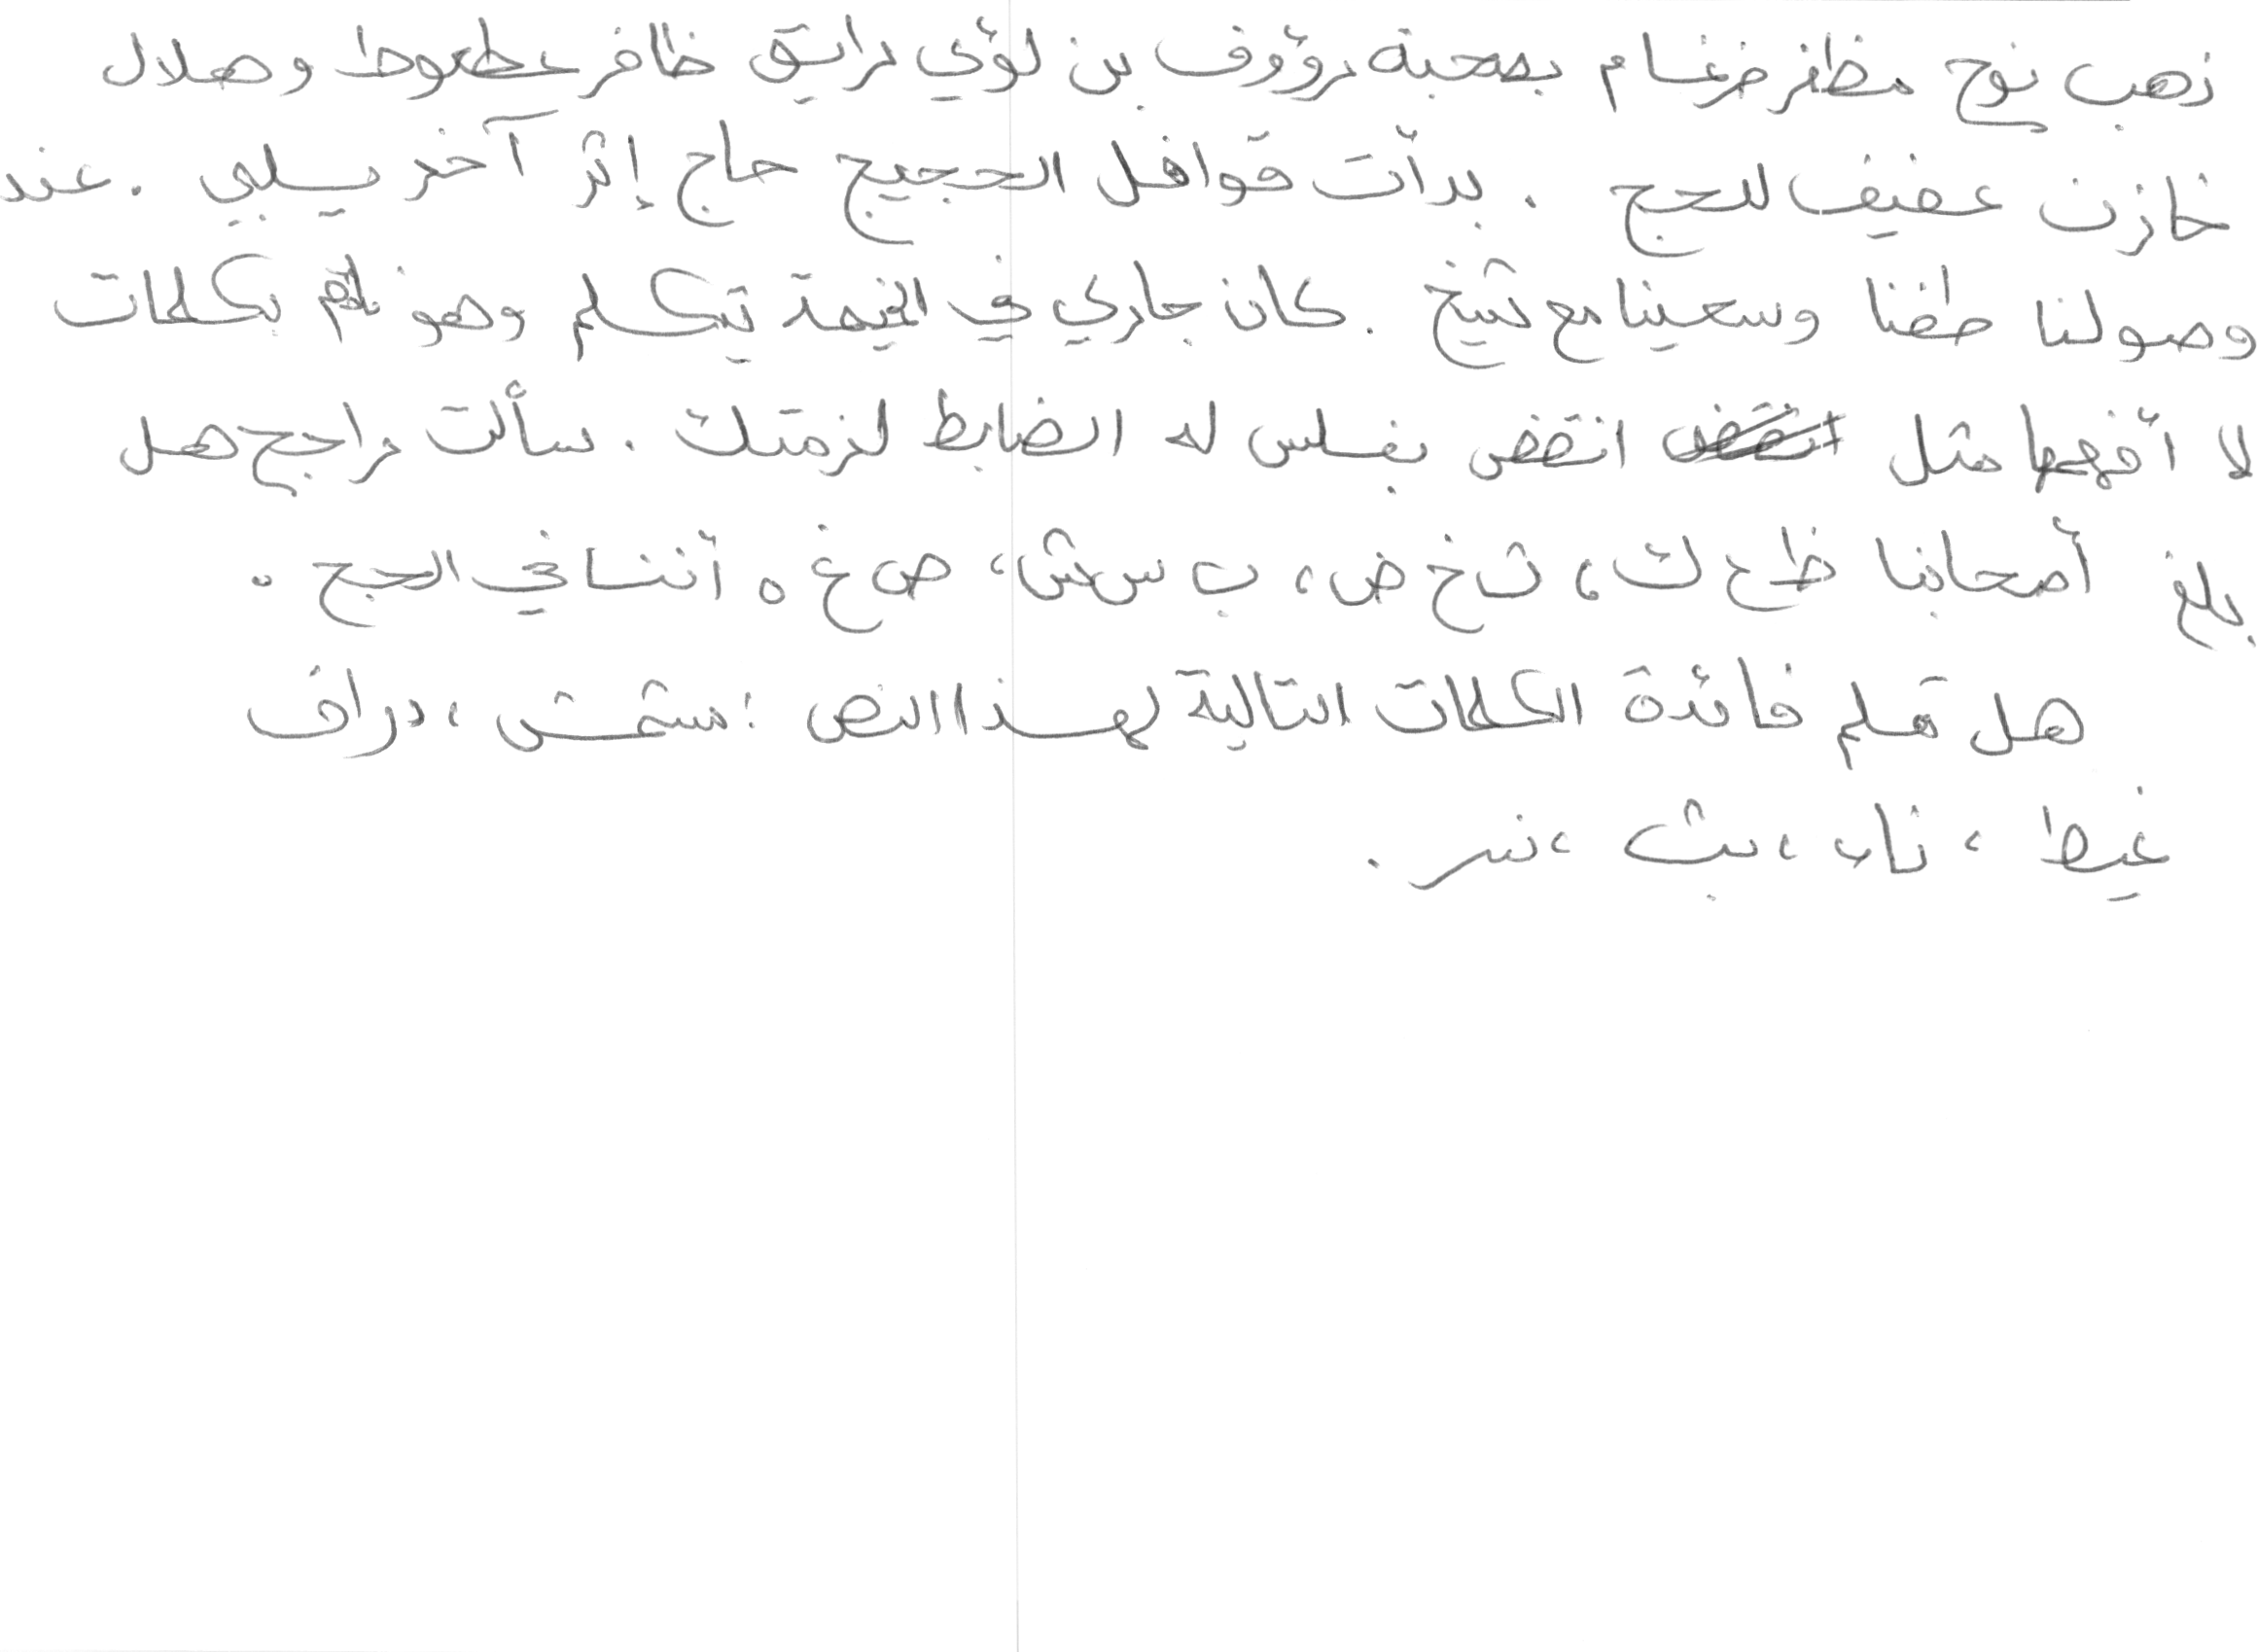 ذهب نوح مظفر ضرغام بصحبة رؤوف بن لؤي رايق ظافر عطعوط وهلال
خازن عفيف للحج . بدأت قوافل الحجيج حاج إثر آخر يلبي . عند
وصولنا طفنا وسعينا مع شيخ . كان جاري في الخيمة يتكلم وهو نائم بكلمات
لا أفهمها مثل انقض بغلس له الضابط لزمتك . سألت راجح هل
بلغ أصحابنا ظ ع ك ، ث خ ض ، ب س ش ، ص غ ه أننا في الحج .
هل تعلم فائدة الكلمات التالية لهذا النص : مشمش ، دراق
غيط ، ناب ، بيث ، نسر .